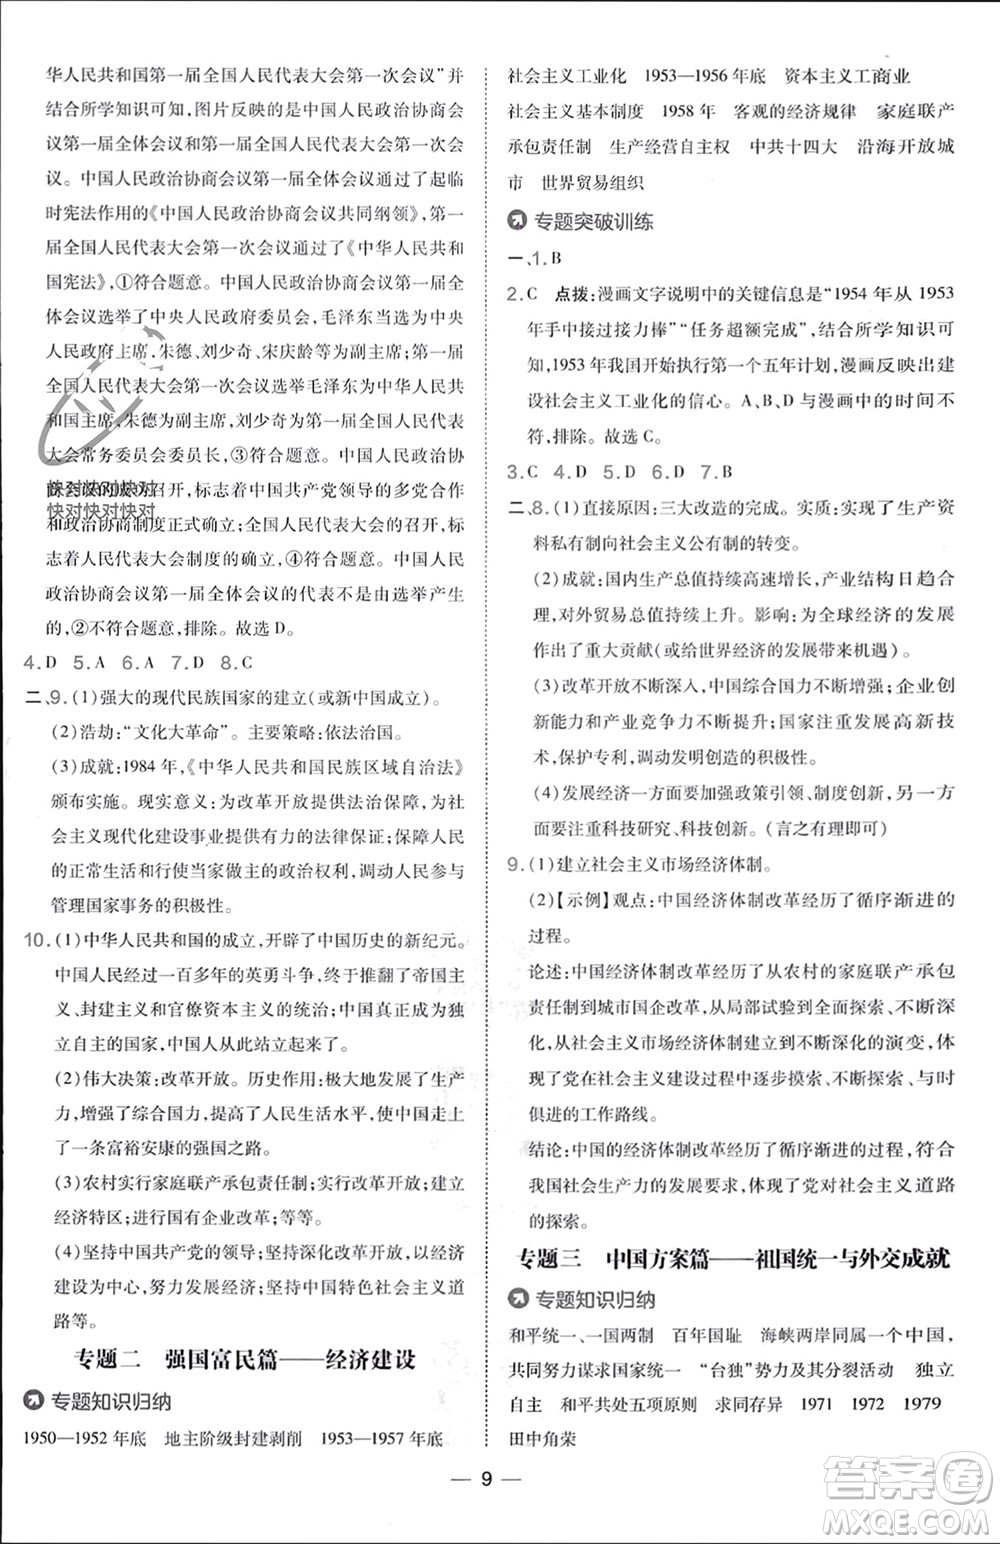 华人民共和国第一届全国人民代表大会第一次会议”并
结合所学知识可知,图片反映的是中国人民政治协商会
议第一届全体会议与第一届全国人民代表大会第一次会
议。中国人民政治协商会议第一届全体会议通过了起临
时宪法作用的《中国人民政治协商会议共同纲领》,第一
届全国人民代表大会第一次会议通过了《中华人民共和
国宪法》,①符合题意。中国人民政治协商会议第一届全
体会议选举了中央人民政府委员会,毛泽东为中央人民
政府主席,朱德、刘少奇、宋庆龄等为副主席;第一届
全国人民代表大会第一次会议选举毛泽东为中华人民共
和国主席,朱德为副主席,刘少奇为第一届全国人民代表
大会常务委员会委员长,③符合题意。中国人民政治协
商会议的成功召开,标志着中国共产党领导的多党合作
和政治协商制度正式确立;全国人民代表大会的召开,标
志着人民代表大会制度的确立,④符合题意。中国人民
政治协商会议第一届全体会议的代表不是由选举产生
的,②不符合题意,排除。故选 D。
4. D 5. A 6. A 7. D 8. C
二、9. (1)强大的现代民族国家的建立(或新中国成立)。
(2)浩劫:“文化大革命”。主要策略:依法治国。
(3)成就:1984 年,《中华人民共和国民族区域自治法》
颁布实施。现实意义:为改革开放提供法治保障,为社
会主义现代化建设事业提供有力的法律保证;保障人民
的正常生活和行使当家做主的政治权利,调动人民参与
管理国家事务的积极性。
10. (1)中华人民共和国的成立,开辟了中国历史的新纪元。
中国人民经过一百多年的英勇斗争,终于推翻了帝国主
义、封建主义和官僚资本主义的统治;中国真正成为独
立自主的国家,中国人从此站立起来。
(2)伟大决策:改革开放。历史作用:极大地发展了生产
力,增强了综合国力,提高了人民生活水平,使中国走上
了一条富裕安康的强国之路。
(3)农村实行家庭联产承包责任制;实行改革开放,建立
经济特区;进行国有企业改革;等等。
(4)坚持中国共产党的领导;坚持深化改革开放,以经济
建设为中心,努力发展经济;坚持中国特色社会主义道
路等。
专题二 强国富民篇——经济建设
专题知识归纳
1950—1952 年底 地主阶级封建剥削 1953—1957 年底
社会主义工业化 1953—1956 年底 资本主义工商业
社会主义基本制度 1958 年 客观的经济规律 家庭联产
承包责任制 生产经营自主权 中共十四大 沿海开放城
市 世界贸易组织
专题突破训练
一、1. B
2. C 点拨:漫画文字说明中的关键信息是“1954 年从 1953
年手中接过接力棒”“任务超额完成”,结合所学知识可
知,1953 年我国开始执行第一个五年计划,漫画反映出建
设社会主义工业化的信心。A、B、D 与漫画中的时间不
符,排除。故选 C。
3. C 4. D 5. D 6. D 7. B
二、8. (1)直接原因:三大改造的完成。实质:实现了生产资
料私有制向社会主义公有制的转变。
(2)成就:国内生产总值持续高速增长,产业结构日趋合
理,对外贸易总值持续上升。影响:为全球经济的发展
作出了重大贡献(或给世界经济的发展带来机遇)。
(3)改革开放不断深入,中国综合国力不断增强;企业创
新能力和产业竞争力不断提升;国家注重发展高新技
术,保护专利,调动发明创造的积极性。
(4)发展经济一方面要加强政策引领、制度创新,另一方
面要注重科技研究、科技创新。(言之有理即可)
9. (1)建立社会主义市场经济体制。
(2)【示例】观点:中国经济体制改革经历了循序渐进的
过程。
论述:中国经济体制改革经历了从农村的家庭联产承包
责任制到城市国企改革,从局部试验到全面探索、不断深
化,从社会主义市场经济体制建立到不断深化的演变,体
现了党在社会主义建设过程中逐步摸索、不断探索、与时
俱进的工作路线。
结论:中国的经济体制改革经历了循序渐进的过程,符合
我国社会生产力的发展要求,体现了党对社会主义道路
的探索。
专题三 中国方案篇——祖国统一与外交成就
专题知识归纳
和平统一、一国两制 百年国耻 海峡两岸同属一个中国,
共同努力谋求国家统一 “台独”势力及其分裂活动 独立
自主 和平共处五项原则 求同存异 1971 1972 1979
田中角荣
9
快对快对快对
快对快对快对
答案圈
MXQE.COM